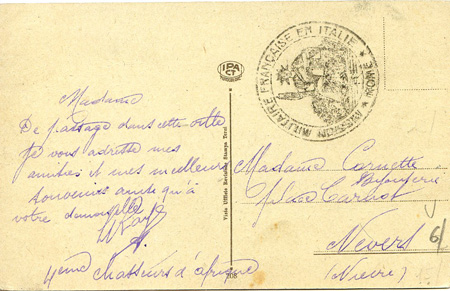 IPA
CT
MISSION MILITAIRE FRANÇAISE EN ITALIE
ROME
Madame
De passage dans cette ville
je vous adresse mes
amitiés et mes meilleurs
souvenirs ainsi qu'à
votre demoiselle
4ème chasseurs d'afrique
Visto Ufficio Revisione Stampa Terni
708
Madame Carnette
Place Carnot
Nevers
(Nièvre)
6/